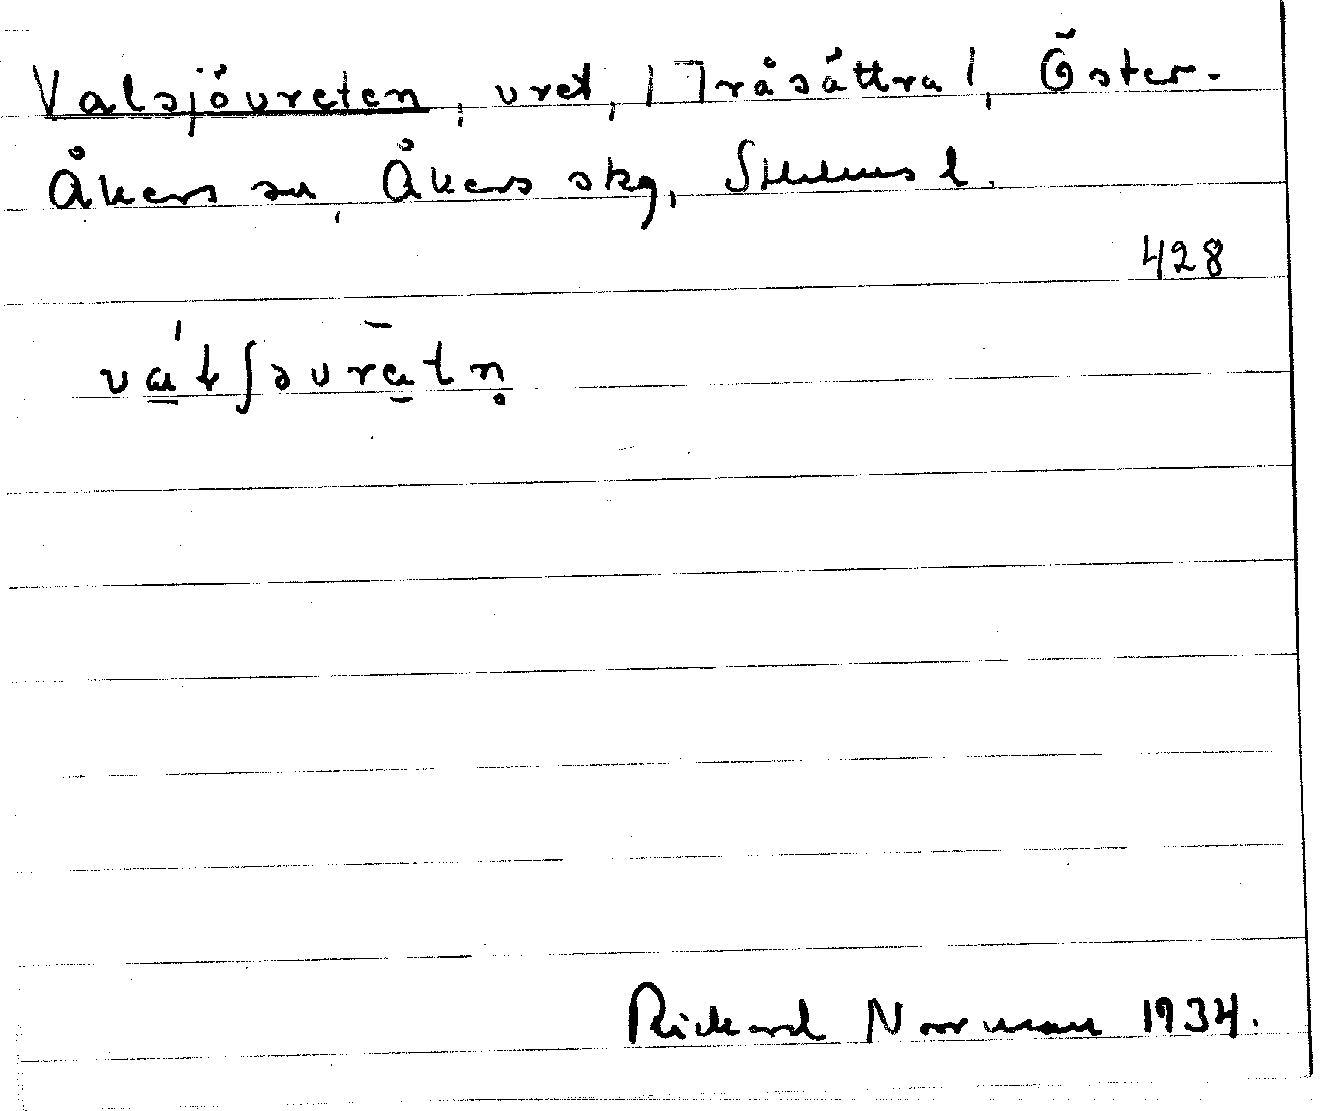 Valsjövreten, vret, /Tråsättra/, Öster-
Åkers sn, Åkers skg, Sthlms l.
428
Rickard Norrman 1934.